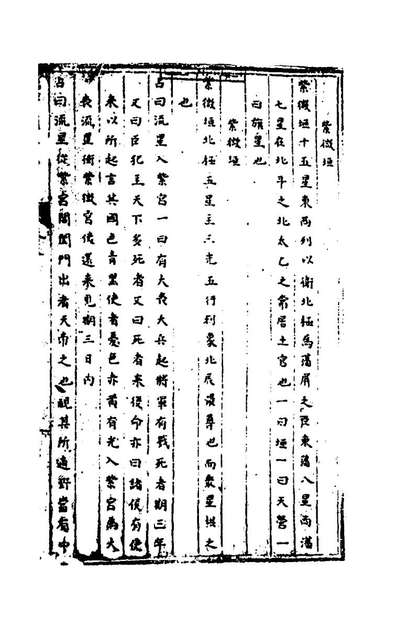 紫微垣
紫微垣十五星東西列以衛北極為藩屏之臣東藩八星西藩
七星在北斗之北太乙之常居土官也一曰垣一曰天營一
曰旗星也
紫微垣
紫微垣北極五星主三光五行列象北辰最尊也而衆星拱之
也
占曰流星入紫宮一曰有大喪大兵起將軍有戰死者期三年
又曰臣犯主天下多死者又曰死者來從命亦曰諸侯有使
來以所起言其國色青黑使者憂色赤黃有光入紫宮為大
喪流星衝紫微宮使還來見期三日內
占曰流星從紫宮閶闔門出者天帝之也視其所適野當有中